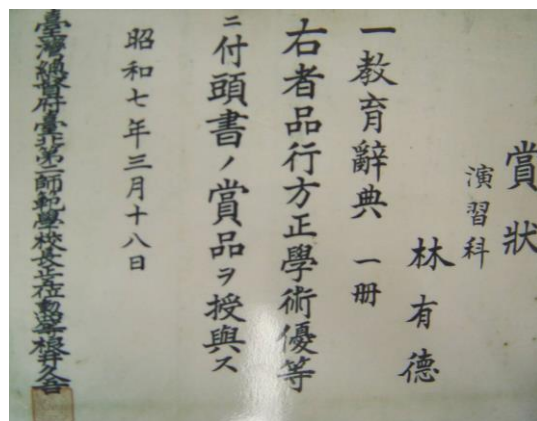 賞狀
演習科
林有德
一教育辭典 一冊
右者品行方正學術優等
ニ付頭書ノ賞品ヲ授與ス
昭和七年三月十八日
臺灣總督府臺北第二師範學校長正五位勳四等根井久吾